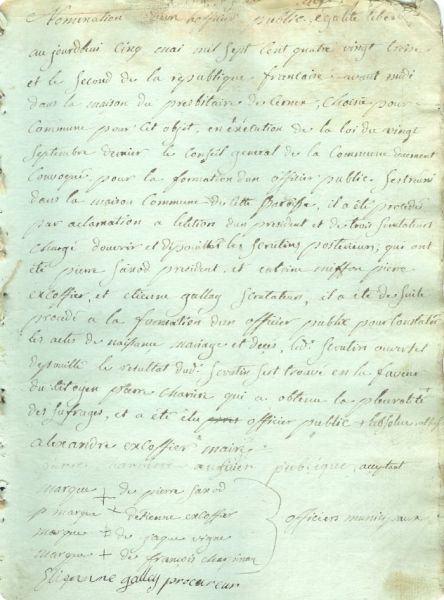 Nomination d'un officier public egalité liberté
aujourdhui cinq mai mil sept cent quatre vingt treise
et le second de la republique francaise avant midi
dans la maison du presbitaire de cernex, choisie pour
Commune pour cet objet, en éxécution de la loi du vingt
Septembre dernier le Conseil general de la Commune duement
Convoqué, pour la formation dun officier public Sest reuni
dans la maison Commune de cette paroisse, il a été procédé
par aclamation a lelition dun president et de trois Scrutateurs
chargé douvrir et depouiller les Scrutins posterieurs, qui ont
été pierre Sarod president, et pierre
excoffier, et etienne gallay Scrutateurs, il a été de suite
procédé a la formation dun officier public pour Constater
les actes de naissance mariage et deces, ledit Scrutin ouvert et
depouillé le resultat dudit Scrutin Sest trouvé en la faveur
du Citoyen pierre charier qui a obtenu la pluralité
des Sufrages, et a été élu officier public
alexandre excoffier maire
publique acceptant
marque + de pierre Sarod
marque + detienne excoffier
marque + de jaque vigne
marque + de françois
officiers municipaux
gallay procureur